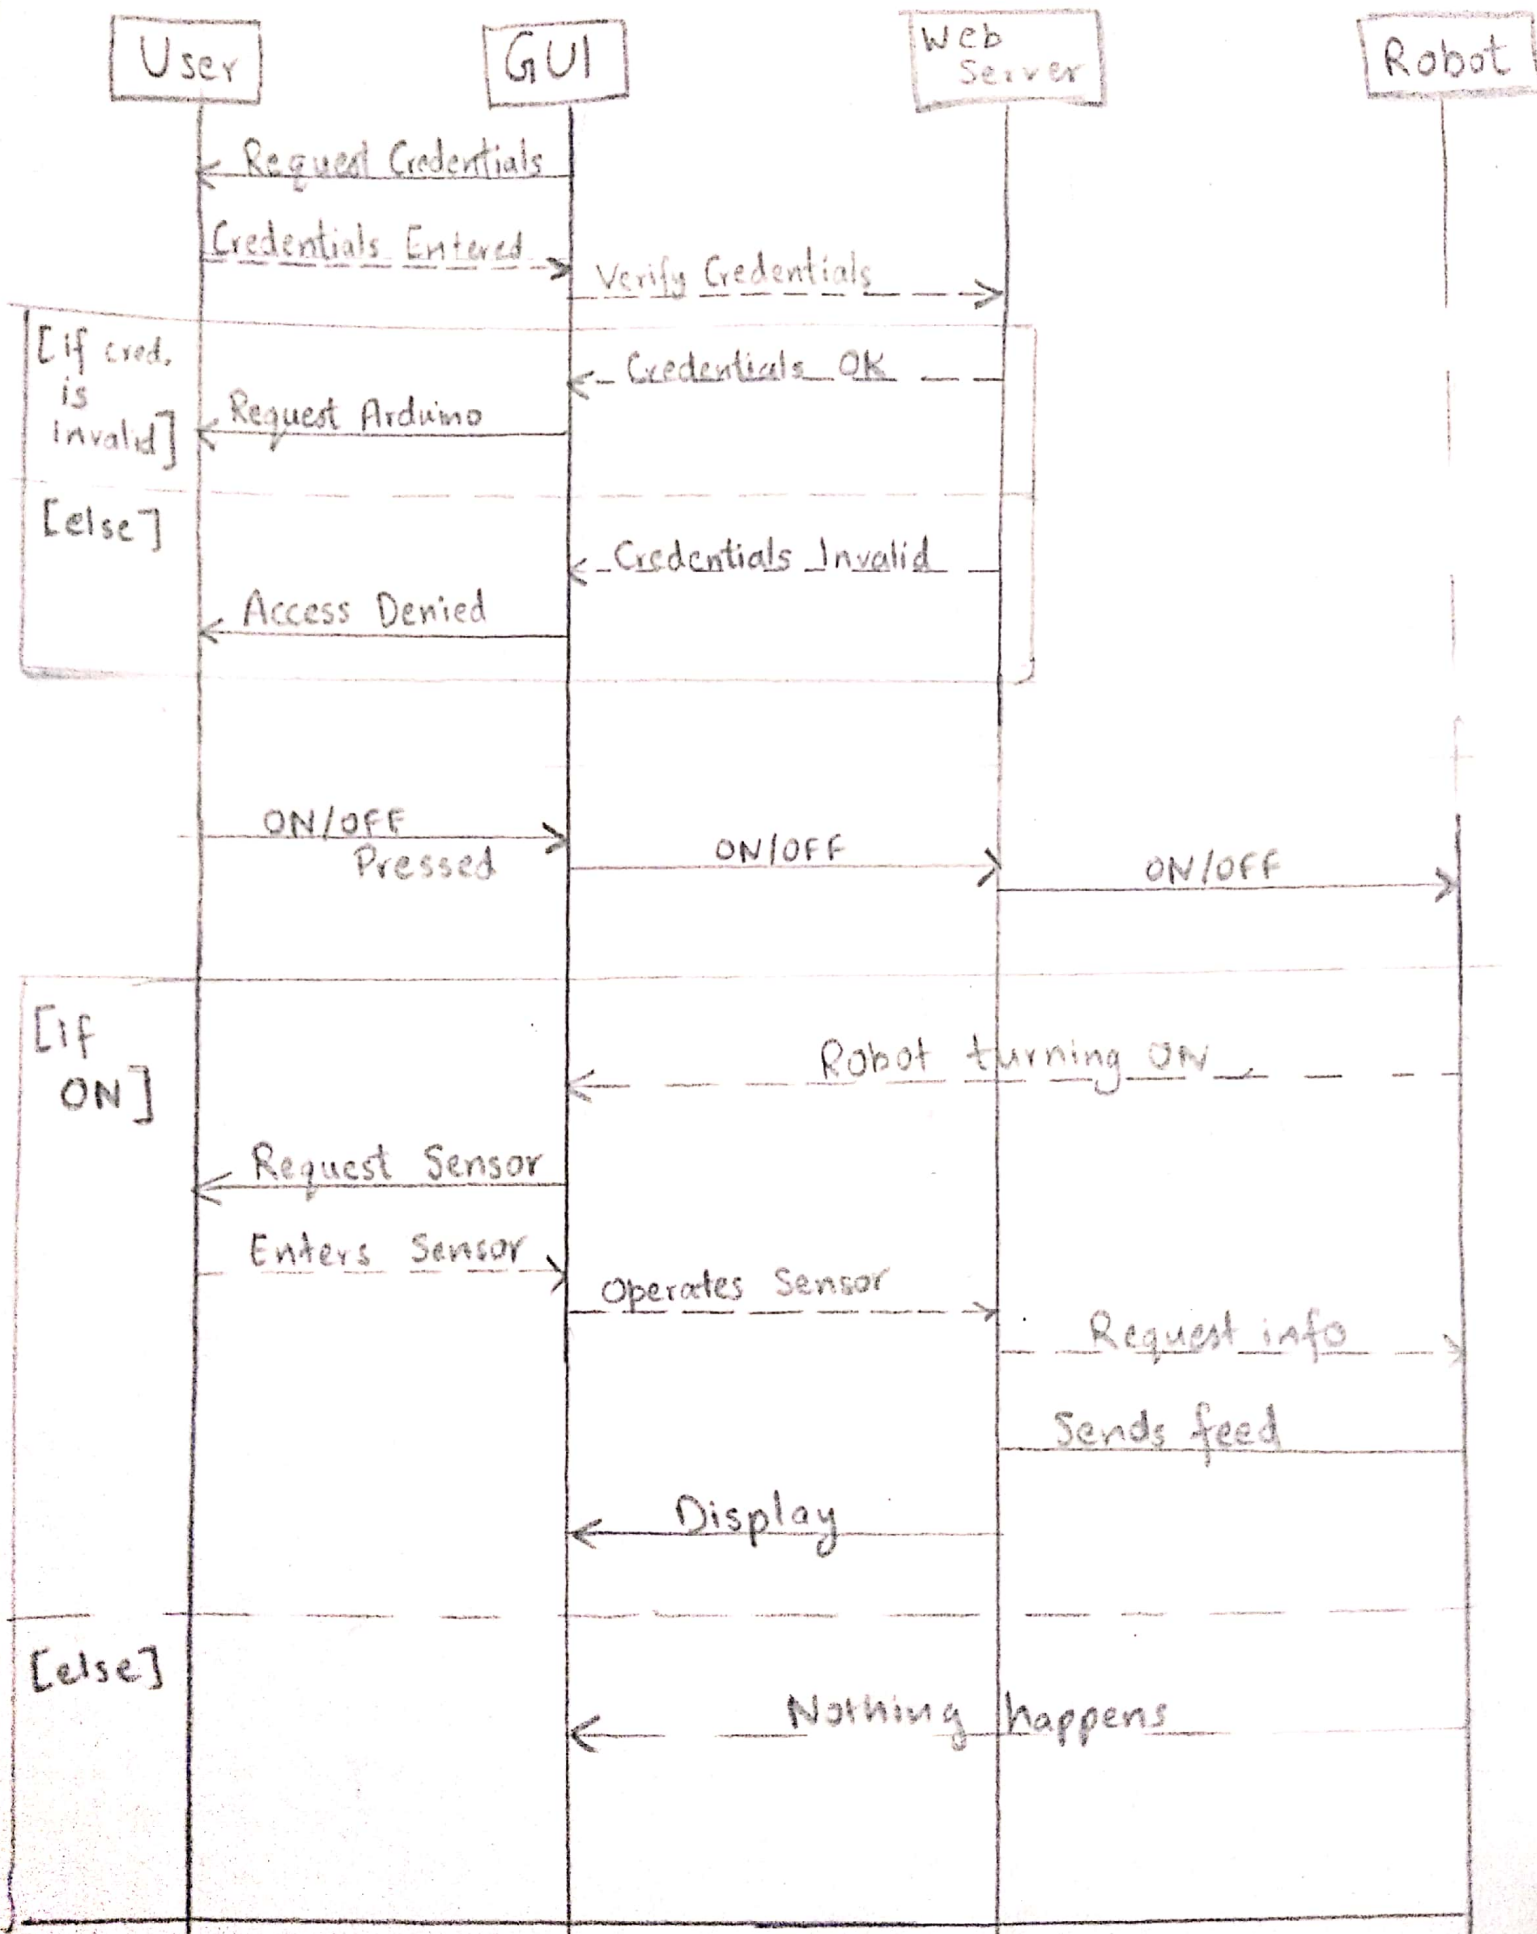 User
GUI
Web
Server
Robot
Request Credentials
Credentials Entered
Verify Credentials
[if cred.
is
invalid]
Credentials OK
Request Arduino
[else]
Credentials Invalid
Access Denied
ON/OFF
Pressed
ON/OFF
ON/OFF
[If
ON]
Robot turning ON
Request Sensor
Enters Sensor
Operates Sensor
Request info
Sends feed
Display
[else]
Nothing happens